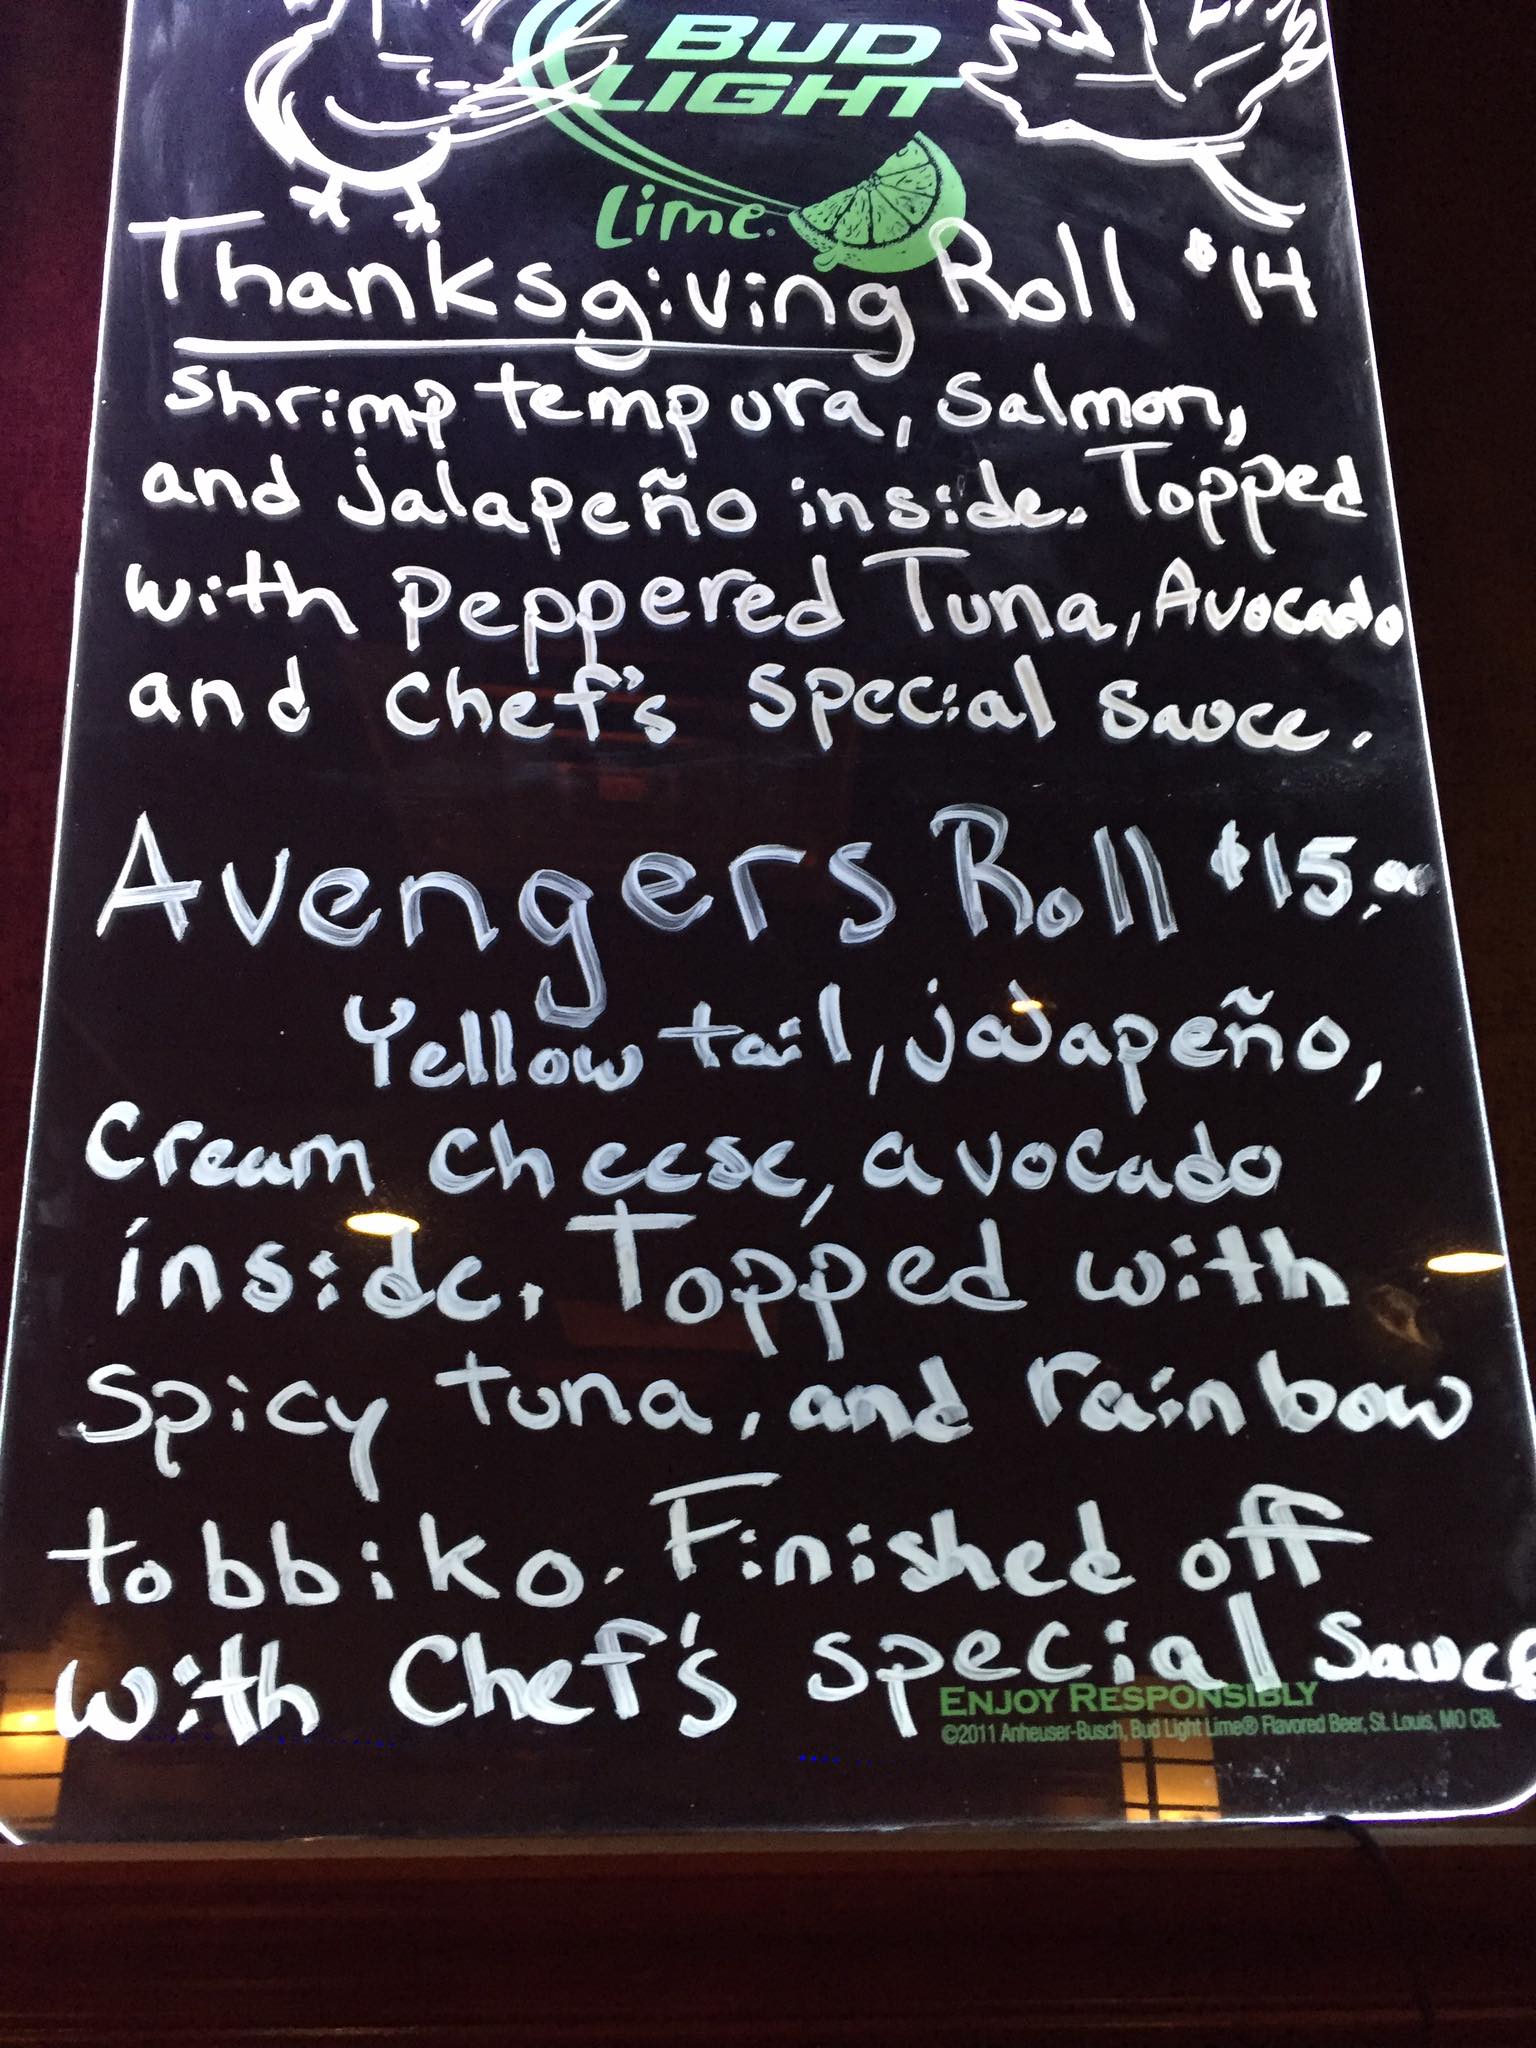 BUD
LIGHT
Lime.
Thanksgiving Roll $14
shrimp tempura, salmon,
and jalapeño inside. Topped
with peppered Tuna, Avocado
and chef's special sauce.
Avengers Roll $15.00
Yellow tail, jalapeño,
cream cheese, avocado
inside. Topped with
spicy tuna, and rainbow
tobbiko. Finished off
with Chef's special sauce
ENJOY RESPONSIBLY
©2011 Anheuser-Busch, Bud Light Lime® Flavored Beer, St. Louis, MO CBL